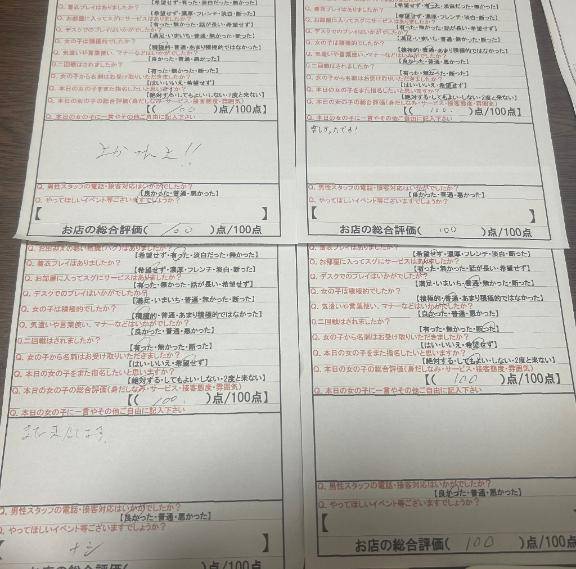 Q. 着衣プレイはありましたか?
【希望せず・有った・淡白だった・無かった】
Q. お部屋に入ってスグにサービスはありましたか?
【希望せず・濃厚・フレンチ・淡白・断った】
【有った・無かった・話が長い・希望せず】
Q. デスクでのプレイはいかがでしたか?
【満足・いまいち・普通・無かった・断った】
Q. 女の子は積極的でしたか?
【積極的・普通・あまり積極的ではなかった】
Q. 気遣いや言葉使い、マナーなどはいかがでしたか?
【良かった・普通・悪かった】
Q. 二回戦はされましたか?
【有った・無かった・断った】
Q. 女の子から名刺はお受け取りいただきましたか?
【はい・いいえ・希望せず】
Q. 本日の女の子をまた指名したいと思いますか?
【絶対する・してもよい・しない・2度と来ない】
Q. 本日の女の子の総合評価(身だしなみ・サービス・接客態度・雰囲気)
【( 100 )点/100点】
Q. 本日の女の子に一言やその他ご自由に記入下さい
Q. 男性スタッフの電話・接客対応はいかがでしたか?
【良かった・普通・悪かった】
Q. やってほしいイベント等ございますでしょうか?
【 】
お店の総合評価( 100 )点/100点
【希望せず・濃厚・フレンチ・淡白・断った】
Q. お部屋に入ってスグにサービスはありましたか?
【有った・無かった・話が長い・希望せず】
Q. デスクでのプレイはいかがでしたか?
【満足・いまいち・普通・無かった・断った】
Q. 女の子は積極的でしたか?
【積極的・普通・あまり積極的ではなかった】
Q. 気遣いや言葉使い、マナーなどはいかがでしたか?
【良かった・普通・悪かった】
Q. 二回戦はされましたか?
【有った・無かった・断った】
Q. 女の子から名刺はお受け取りいただきましたか?
【はい・いいえ・希望せず】
Q. 本日の女の子をまた指名したいと思いますか?
【絶対する・してもよい・しない・2度と来ない】
Q. 本日の女の子の総合評価(身だしなみ・サービス・接客態度・雰囲気)
【( 100 )点/100点】
Q. 本日の女の子に一言やその他ご自由に記入下さい
楽しかったです!
Q. 男性スタッフの電話・接客対応はいかがでしたか?
【良かった・普通・悪かった】
Q. やってほしいイベント等ございますでしょうか?
【 】
お店の総合評価( 100 )点/100点
【希望せず・有った・淡白だった・無かった】
Q. 着衣プレイはありましたか?
【希望せず・濃厚・フレンチ・淡白・断った】
Q. お部屋に入ってスグにサービスはありましたか?
【有った・無かった・話が長い・希望せず】
Q. デスクでのプレイはいかがでしたか?
【満足・いまいち・普通・無かった・断った】
Q. 女の子は積極的でしたか?
【積極的・普通・あまり積極的ではなかった】
Q. 気遣いや言葉使い、マナーなどはいかがでしたか?
【良かった・普通・悪かった】
Q. 二回戦はされましたか?
【有った・無かった・断った】
Q. 女の子から名刺はお受け取りいただきましたか?
【はい・いいえ・希望せず】
Q. 本日の女の子をまた指名したいと思いますか?
【絶対する・してもよい・しない・2度と来ない】
Q. 本日の女の子の総合評価(身だしなみ・サービス・接客態度・雰囲気)
【( 100 )点/100点】
Q. 本日の女の子に一言やその他ご自由に記入下さい
また来たします
Q. 男性スタッフの電話・接客対応はいかがでしたか?
【良かった・普通・悪かった】
Q. やってほしいイベント等ございますでしょうか?
【 ナシ 】
お店の総合評価( )点/100点
Q. 着衣プレイはありましたか?
【希望せず・濃厚・フレンチ・淡白・断った】
Q. お部屋に入ってスグにサービスはありましたか?
【有った・無かった・話が長い・希望せず】
Q. デスクでのプレイはいかがでしたか?
【満足・いまいち・普通・無かった・断った】
Q. 女の子は積極的でしたか?
【積極的・普通・あまり積極的ではなかった】
Q. 気遣いや言葉使い、マナーなどはいかがでしたか?
【良かった・普通・悪かった】
Q. 二回戦はされましたか?
【有った・無かった・断った】
Q. 女の子から名刺はお受け取りいただきましたか?
【はい・いいえ・希望せず】
Q. 本日の女の子をまた指名したいと思いますか?
【絶対する・してもよい・しない・2度と来ない】
Q. 本日の女の子の総合評価(身だしなみ・サービス・接客態度・雰囲気)
【( 100 )点/100点】
Q. 本日の女の子に一言やその他ご自由に記入下さい
Q. 男性スタッフの電話・接客対応はいかがでしたか?
【良かった・普通・悪かった】
Q. やってほしいイベント等ございますでしょうか?
【 】
お店の総合評価( 100 )点/100点